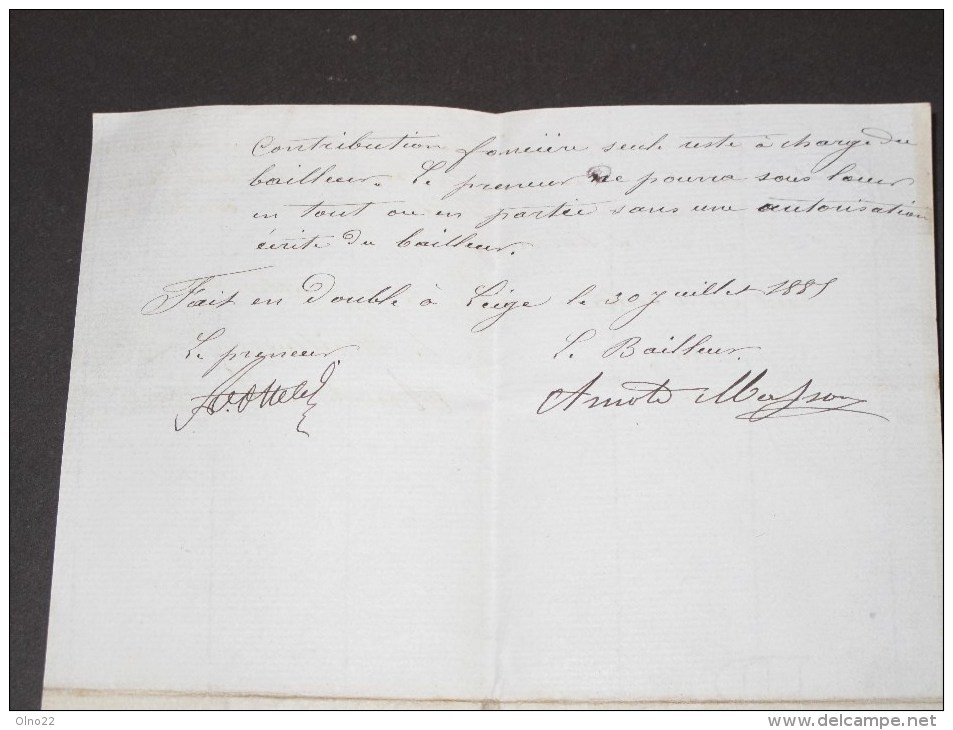 Contribution foncière seule reste à charge du
bailleur. Le preneur ne pourra sous louer
en tout ou en partie sans une autorisation
écrite du bailleur.
Fait en double à Liége le 30 Juillet 1881
Le preneur Le Bailleur.
Masson
Olno22
www.delcampe.net